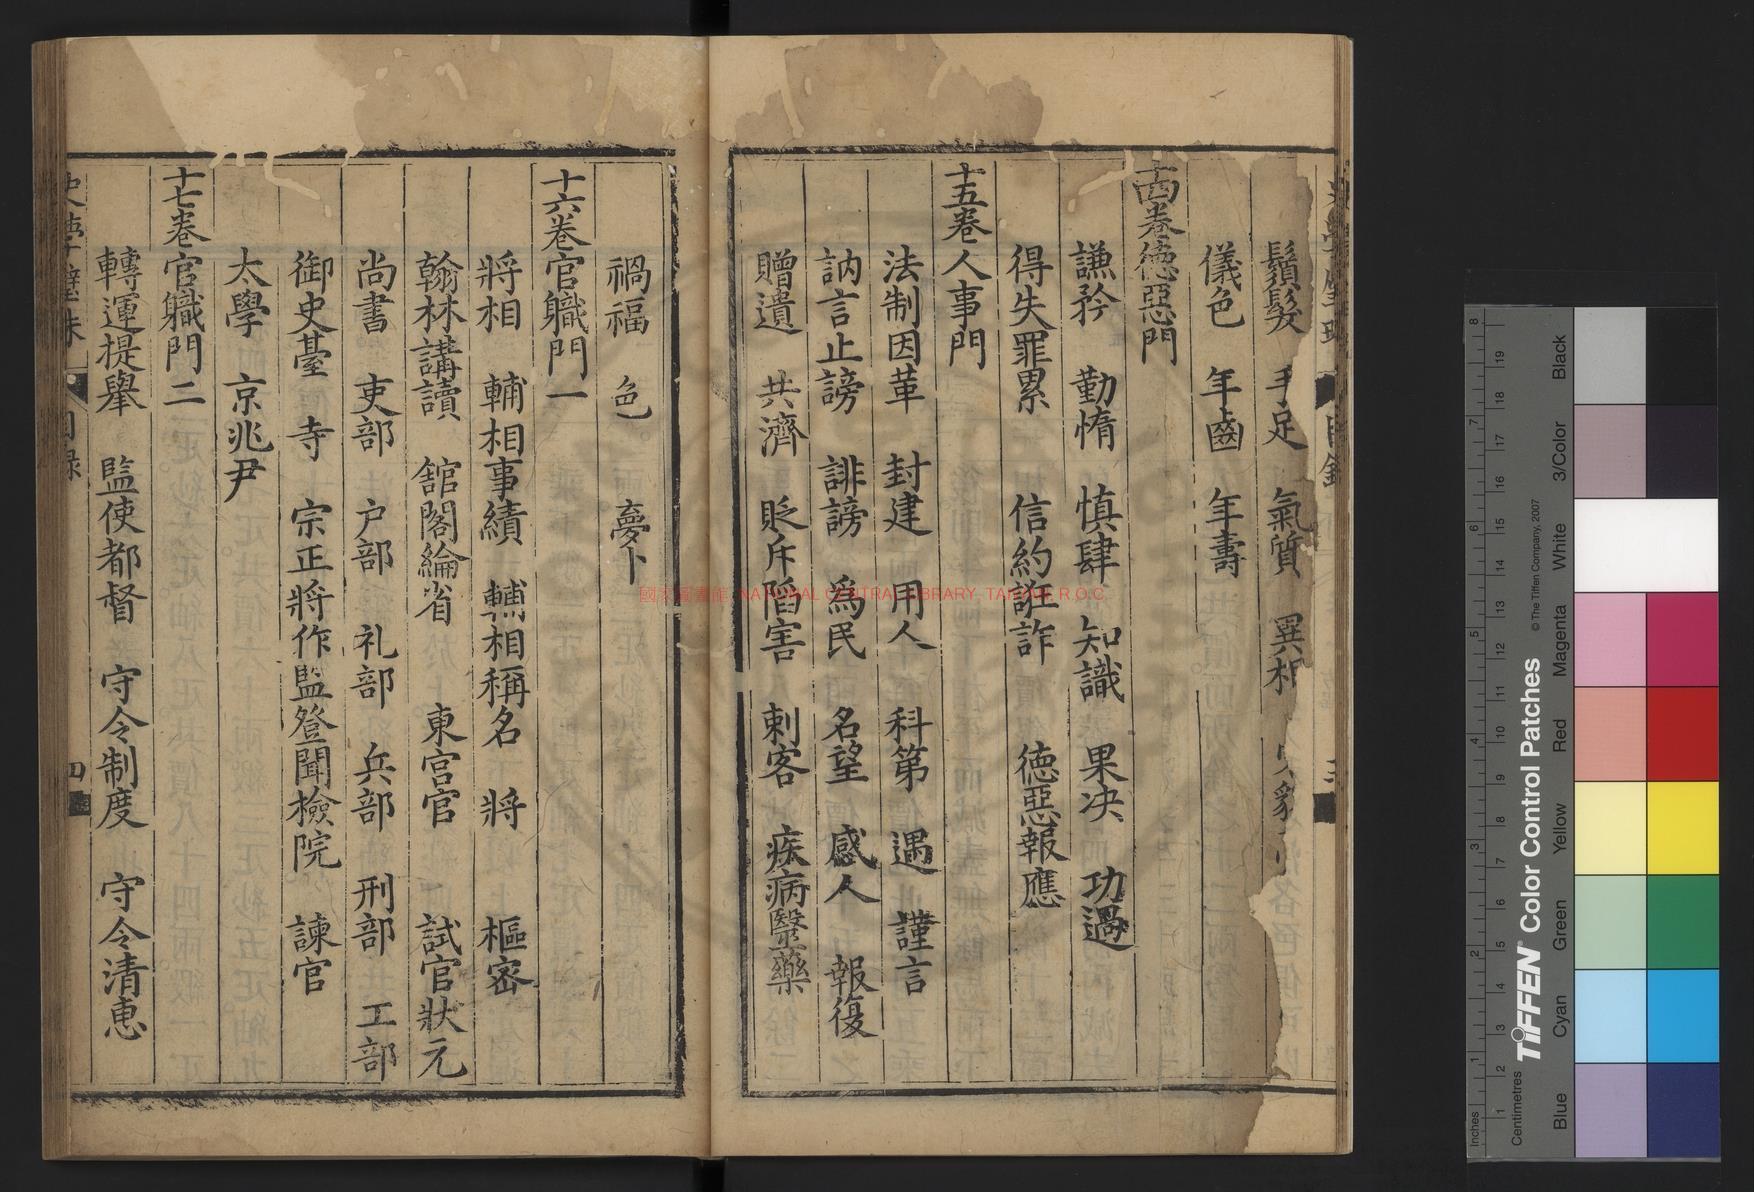 鬚髮　手足　氣質　異相
儀色　年齒　年壽
十四卷德惡門
謙矜　勤惰　慎肆　知識　果决　功過
得失罪累　信約誑詐　德惡報應
十五卷人事門
法制因革　封建　用人　科第　遇　謹言
訥言止謗　誹謗　爲民　名望　感人　報復
贈遺　共濟　貶斥陷害　刺客　疾病醫藥
禍福　色　夢卜
十六卷官職門一
將相　輔相事績　輔相稱名　將　樞密
翰林講讀　舘閣綸省　東宮官　試官狀元
尚書　吏部　户部　礼部　兵部　刑部　工部
御史臺　寺　宗正將作監登聞檢院　諫官
太學　京兆尹
十七卷官職門二
轉運提舉　監使都督　守令制度　守令清惠
目録
四
國家圖書館 NATIONAL CENTRAL LIBRARY, TAIWAN, R.O.C
TIFFEN® Color Control Patches
© The Tiffen Company, 2007
Inches
Centimetres
Blue
Cyan
Green
Yellow
Red
Magenta
White
3/Color
Black